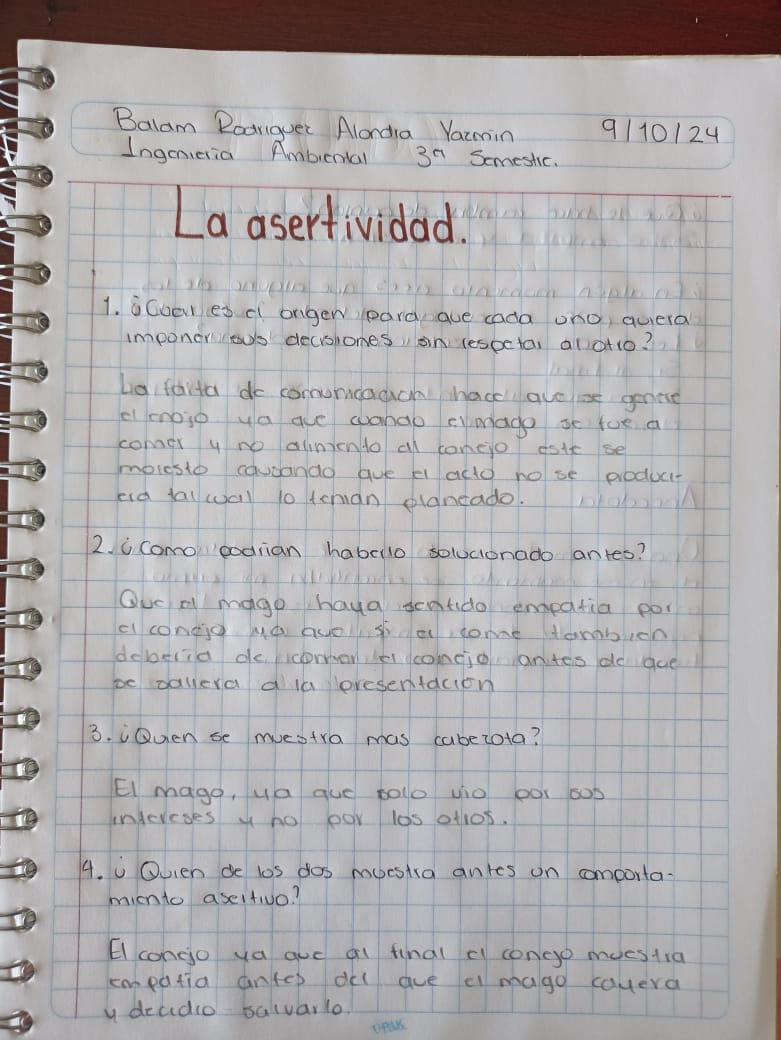 Balam Rodriguez Alondra Yazmin 9/10/24
Ingenieria Ambiental 3er Semestre.
La asertividad.
1. ¿Cual es el origen para que cada uno quiera
imponer sus decisiones sin respetar al otro?
La falta de comunicación hace que se genere
el enojo ya que cuando el mago se fue a
comer y no alimento al conejo este se
molesto causando que el acto no se produci-
era tal cual lo tenian planeado.
2. ¿Como podrian haberlo solucionado antes?
Que el mago haya sentido empatia por
el conejo ya que si el come tambien
deberia de comer el conejo antes de que
se saliera a la presentación
3. ¿Quen se muestra mas cabezota?
El mago, ya que solo vio por sus
intereses y no por los otros.
4. ¿Quien de los dos muestra antes un comporta-
miento asertivo?
El conejo ya que al final el conejo muestra
empatia antes del que el mago cayera
y decidio salvarlo.